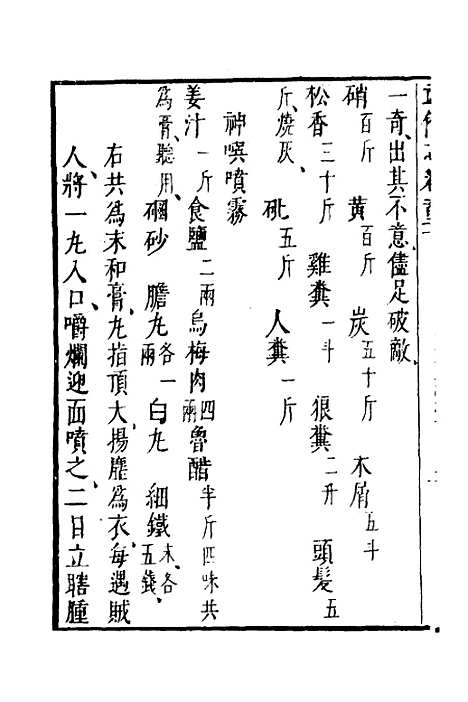 一奇、出其不意、儘足破敵、
硝百斤　黃百斤　炭五十斤　木屑五斗
松香三十斤　雞糞一斗　狼糞二升　頭髮五
斤、燒灰、　砒五斤　人糞一斤
神噀噴霧
姜汁一斤食鹽二兩烏梅肉四兩魯醋半斤四味共
為膏、聽用、硇砂　膽九各一兩白九　細鐵末、各五錢、
右共為末和膏、九指頂大、揚塵為衣、每遇賊
人、將一九入口、嚼爛迎面噴之、二目立瞎腫